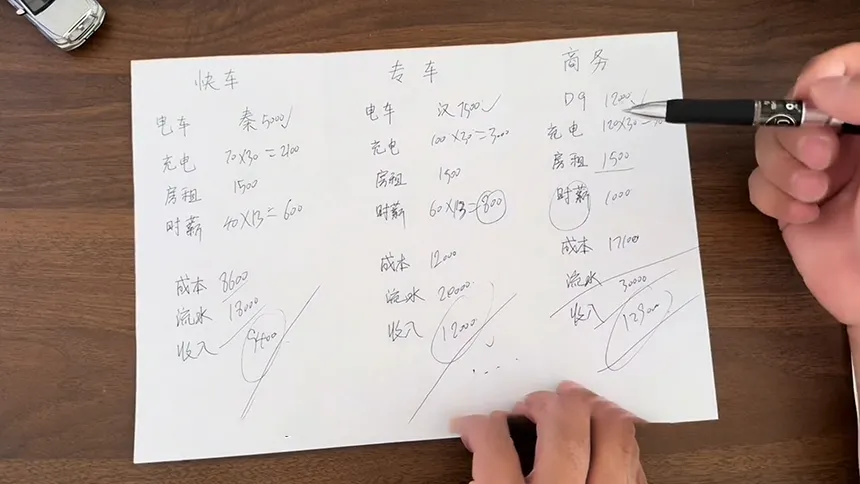 快车
电车 秦5000√
充电 70×30=2100
房租 1500
时薪 40×13=600
成本 8600
流水 18000
收入 9400
专车
电车 汉7500√
充电 100×30=3000
房租 1500
时薪 60×13=800
成本 12000
流水
收入 12000
商务
D9
充电 120×30=
房租 1500
时薪 1000
成本 17100
流水 30000
收入 12900